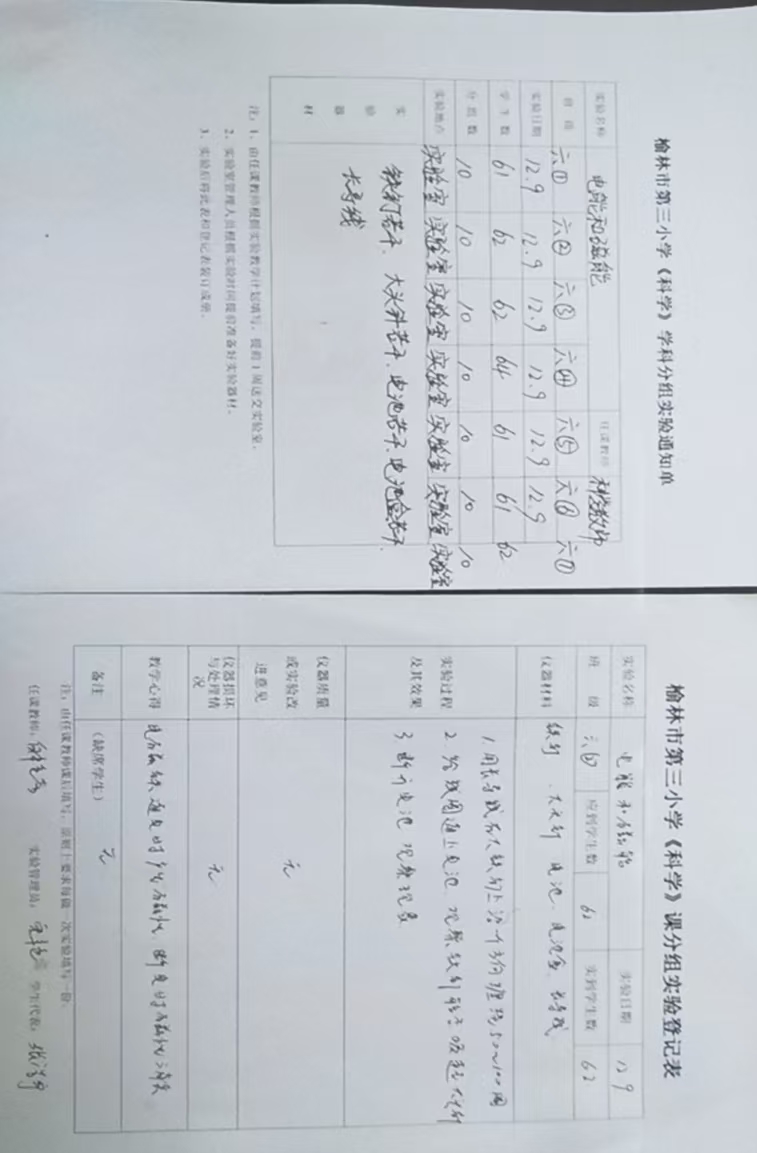 榆林市第三小学《科学》学科分组实验通知单
实验名称 电能和磁能 任课教师 科学教师
班级 六① 六② 六③ 六④ 六⑤ 六⑥ 六⑦
实验日期 12.9 12.9 12.9 12.9 12.9 12.9
学生数 61 62 62 64 61 61 62
分组数 10 10 10 10 10 10 10
实验地点 实验室 实验室 实验室 实验室 实验室 实验室 实验室
实验器材 铁钉若干、大头针若干、电池若干、电池盒若干、
长导线
注:1、由任课教师根据实验教学计划填写,提前1周送交实验室。
2、实验室管理人员根据实验时间提前准备好实验器材。
3、实验后将此表和登记表装订成册。
榆林市第三小学《科学》课分组实验登记表
实验名称 电能和磁能 实验日期 12.9
班级 应到学生数 62 实到学生数 62
仪器材料 铁钉、大头针、电池、电池盒、长导线
实验过程及其效果 1.用长导线在大铁钉上沿一个方向缠绕50~100圈
2.给线圈通上电池,观察铁钉能否吸起大头针
3.断开电池 观察现象
仪器质量或实验改进意见 无
仪器损坏与处理情况 无
教学心得 电磁铁通电时产生磁性,断电时磁性消失
备注 (缺席学生) 无
注:由任课教师课后填写,原则上要求每做一次实验填写一份。
任课教师: 实验管理员: 学生代表: